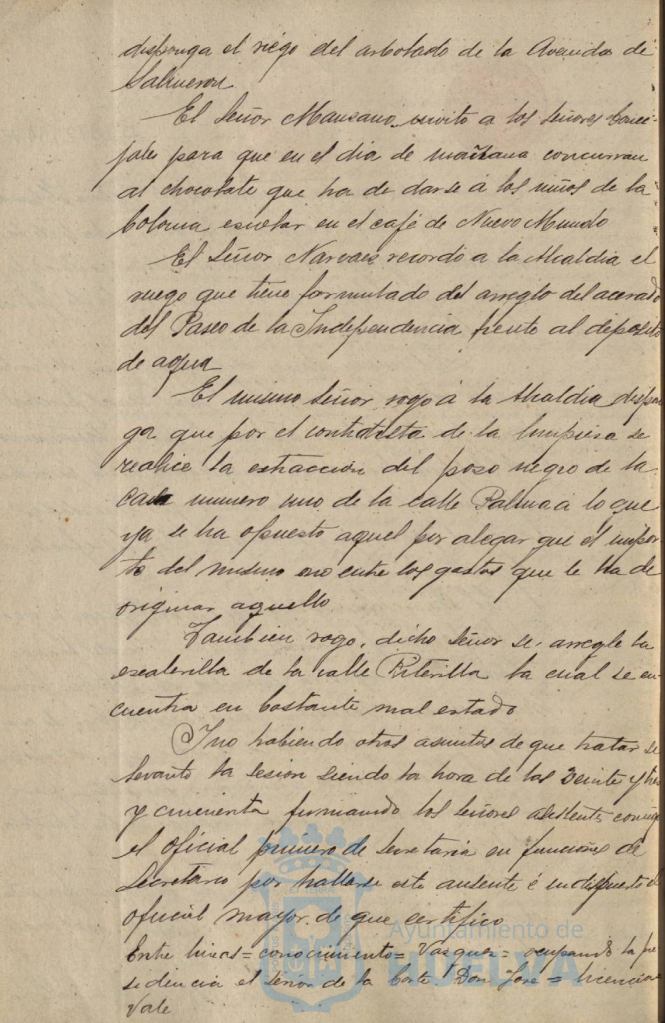 disponga el riego del arbolado de la Avenida de
Salmeron
El Señor Manzano invito a los Señores Conce-
jales para que en el dia de mañana concurran
al chocolate que ha de darse á los niños de la
Colonia escolar en el café de Nuevo Mundo
El Señor Narvaez recordó a la Alcaldia el
ruego que tiene formulado del arreglo del acerado
del Paseo de la Independencia frente al deposito
de agua
El mismo Señor rogó á la Alcaldia dispon
ga que por el contratista de la limpieza se
realice la extracción del pozo negro de la
casa numero uno de la calle Palma á lo que
ya se ha opuesto aquel por alegar que el impor
te del mismo no entre los gastos que le ha de
originar aquello
Tambien rogo, dicho Señor se arregle la
escalerilla de la calle la cual se en
cuentra en bastante mal estado
Y no habiendo otros asuntos de que tratar se
levantó la sesion siendo la hora de las veinte y tres
y cincuenta firmando los señores asistentes conmigo
el oficial primero de Secretaria en funciones de
Secretario por hallarse este ausente é indispuesto el
oficial mayor de que certifico
Entre lineas = conocimiento = Vasquez = ocupando la pre
sidencia el Señor de la Corte Don Jose = licencia
Vale
Ayuntamiento de
HUELVA